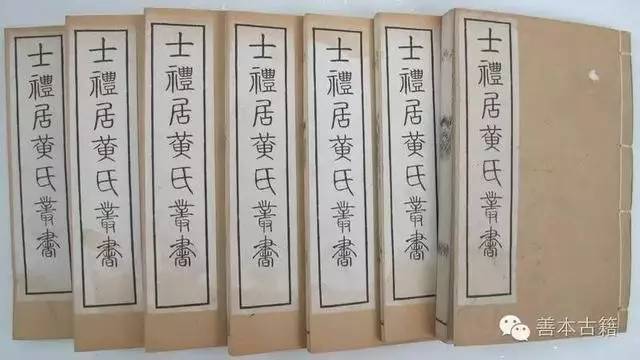 士禮居黄氏叢書
士禮居黄氏叢書
士禮居黄氏叢書
士禮居黄氏叢書
士禮居黄氏叢書
士禮居黄氏叢書
士禮居黄氏叢書
善本古籍